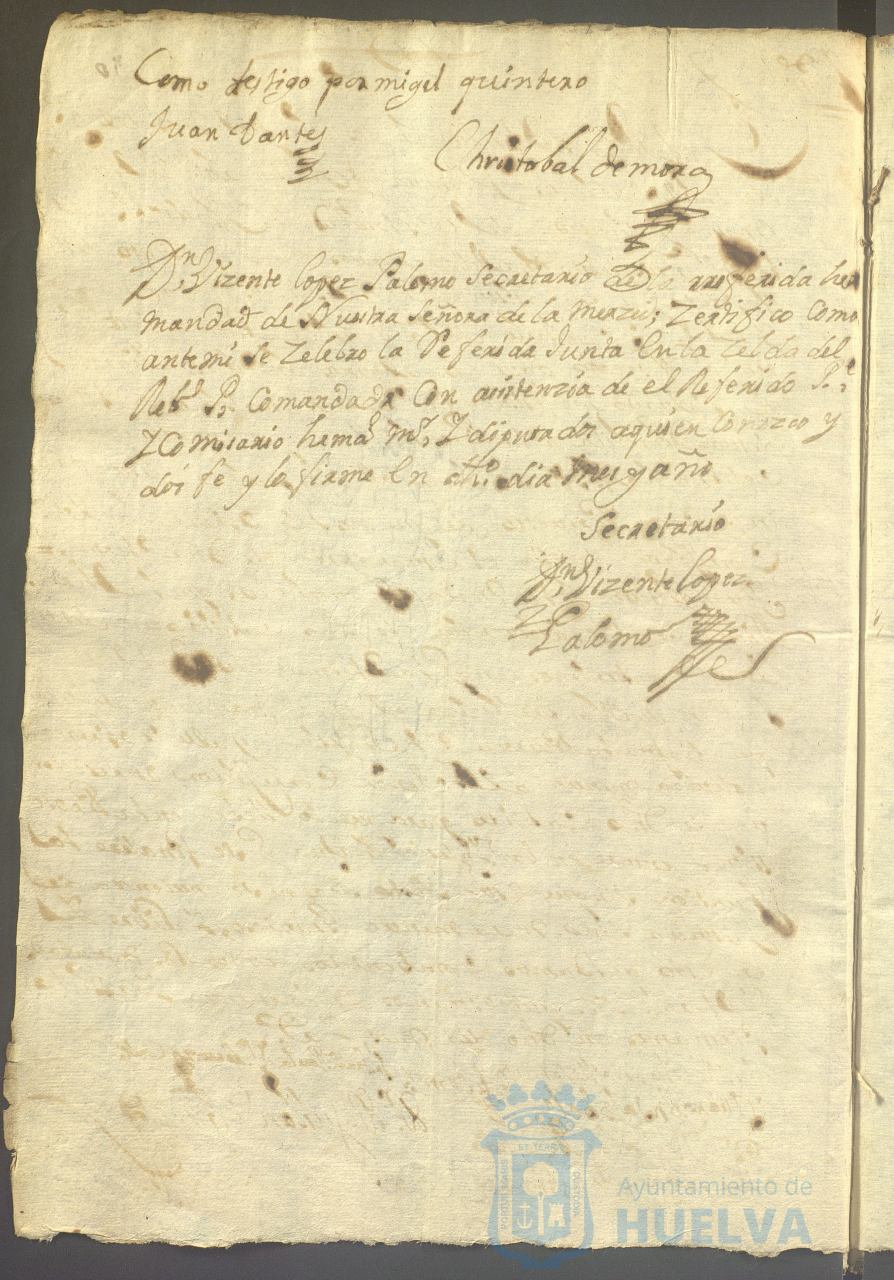 Como testigo por migel quintero
Juan Dantes
Christobal de mora
Dn, Vizente lopez Palomo Secretario de la rreferida her
mandad de Nuestra Señora de la Merzed; Zertifico Como
antemi Se Zelebro la Referida Junta En la Zelda del
Rebd. P. Comandador Con asistenzia de el Referido P.e
Y Comisario herma.d mr, Y diputados aquien Conozco y
doi fe y lo firme En dho. dia mes y año
Secretario
Dn, Vizente lopez
Palomo
Ayuntamiento de
HUELVA